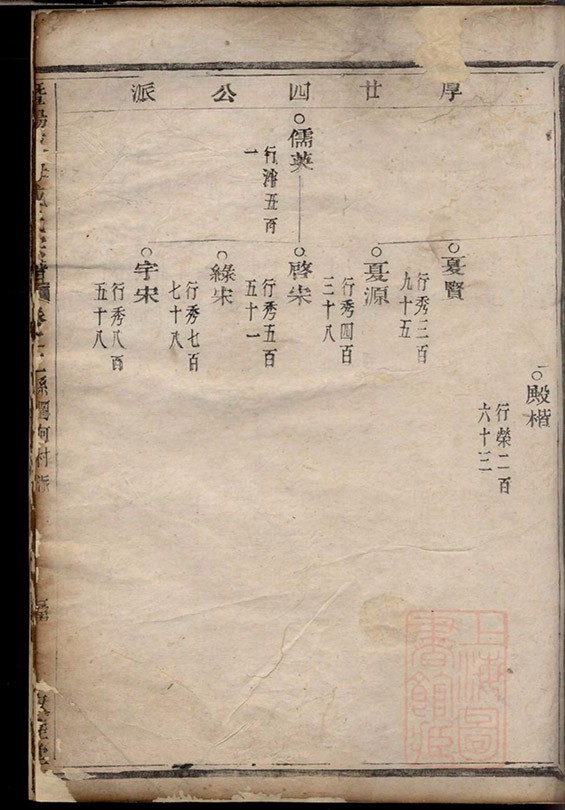 厚廿四公派
殿楷
行榮二百
六十三
儒英
行濟五百
一
夏賢
行秀三百
九十五
夏源
行秀四百
三十八
啓宋
行秀五百
五十一
綠宋
行秀七百
七十八
宇宋
行秀八百
五十八
上海圖
書館藏